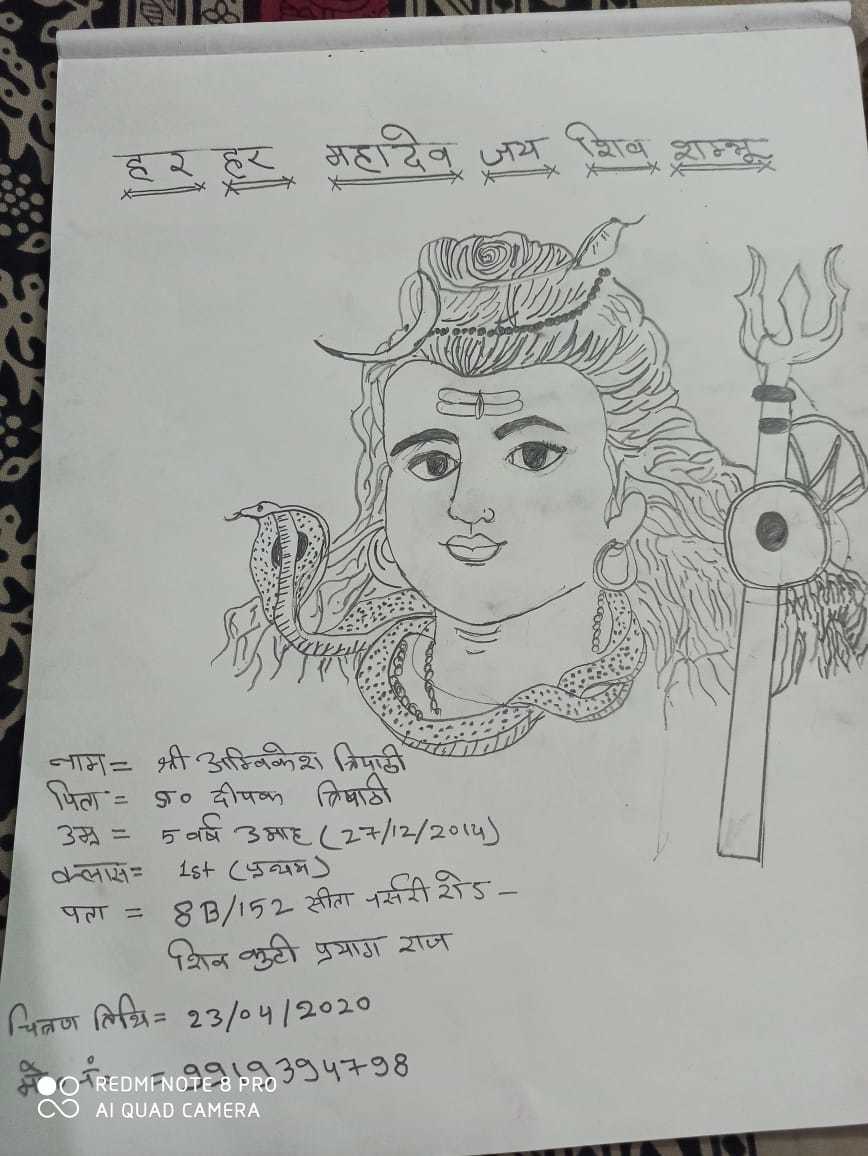 हर हर महादेव जय शिव शम्भू
नाम = श्री अम्बिकेश त्रिपाठी
पिता = डा० दीपक त्रिपाठी
उम्र = 5 वर्ष 3 माह (27/12/2014)
क्लास = 1st (प्रथम)
पता = 8B/152 सीता नर्सरी रोड -
शिव कुटी प्रयाग राज
चित्रण तिथि = 23/04/2020
मो नं = 9919394798
REDMI NOTE 8 PRO
AI QUAD CAMERA